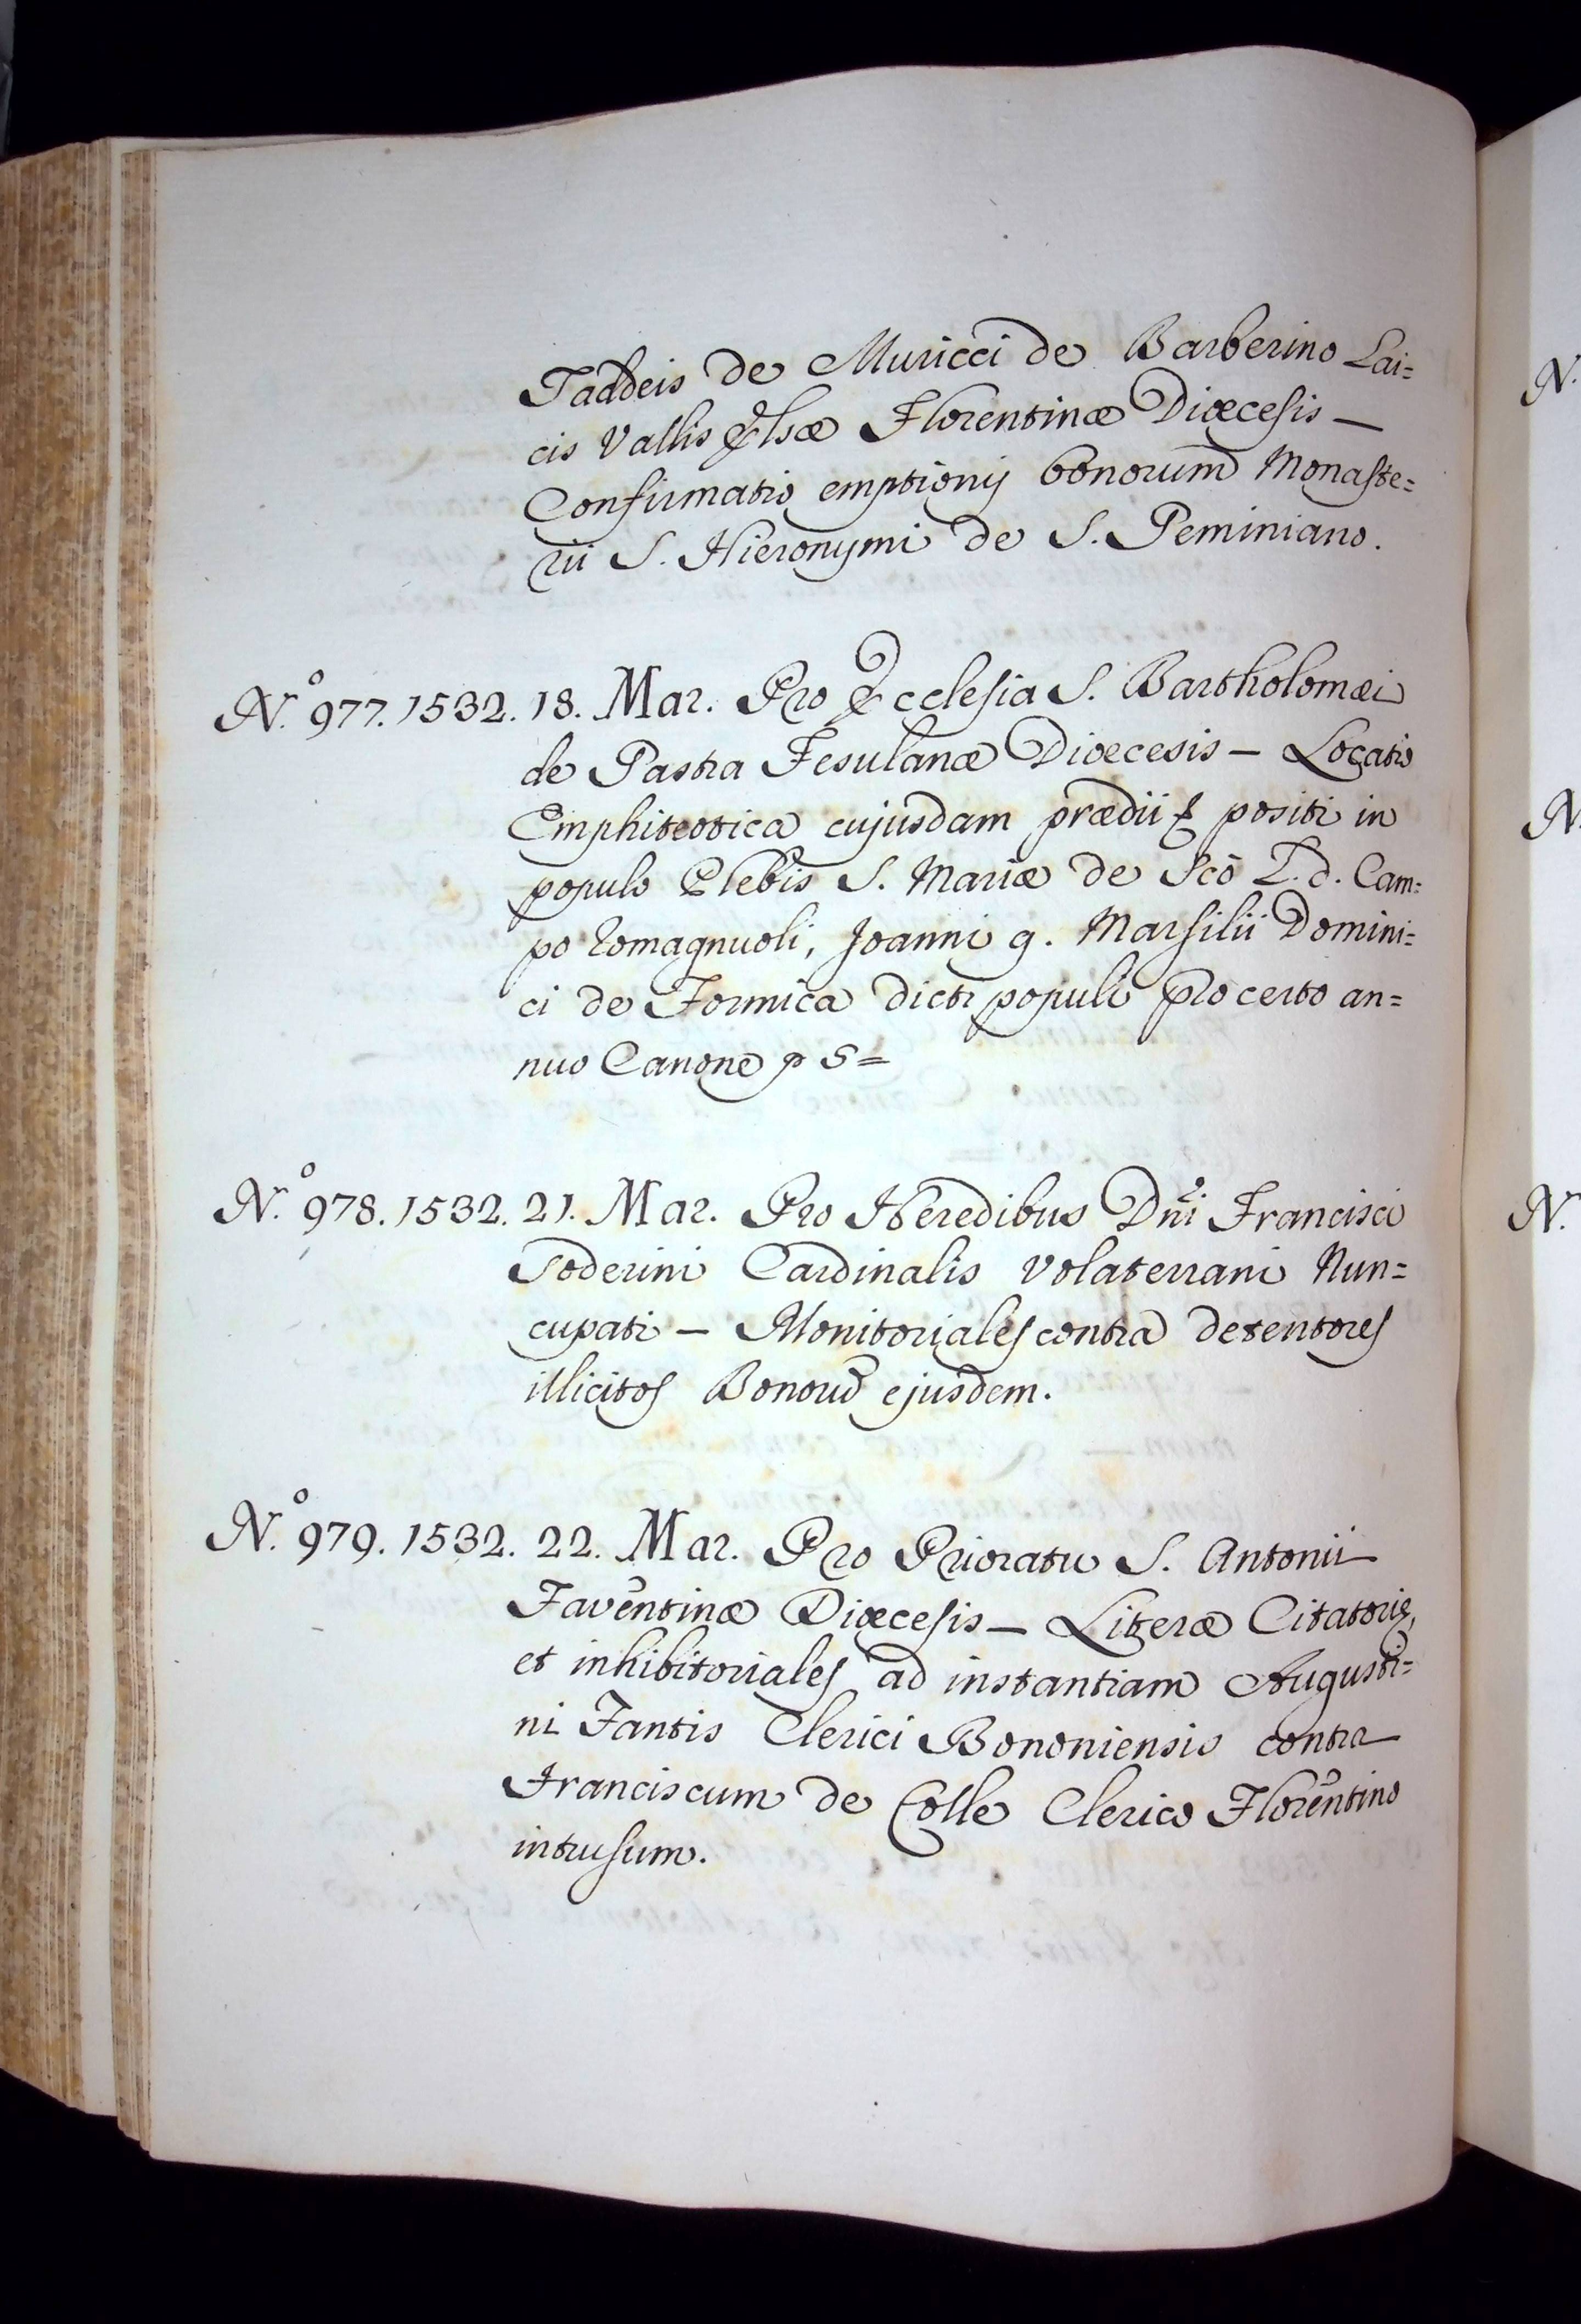 Taddeis de Muricci de Barberino Lai=
cis Vallis Elsæ Florentinæ Diœcesis —
Confirmatio emptionis bonorum Monaste=
rii S. Hieronymi de S. Geminiano.
N.º 977. 1532. 18. Mar. Pro Ecclesia S. Bartholomæi
de Pastra Fesulanæ Diœcesis — Locatio
Emphiteotica cujusdam prædii positi in
populo Plebis S. Mariæ de Scò L. d. Cam=
po Romagnuoli, Joanni q. Marsilii Domini=
ci de Formica dicti populi pro certo an=
nuo Canone p S=
N.º 978. 1532. 21. Mar. Pro Heredibus Dñi Francisci
Soderini Cardinalis Volaterrani Nun=
cupati — Monitoriales contra detentores
illicitos Bonorũ ejusdem.
N.º 979. 1532. 22. Mar. Pro Prioratu S. Antonii
Favẽntinæ Diœcesis — Literæ Citatoriæ,
et inhibitoriales ad instantiam Augusti=
ni Fantis Clerici Bononiensis contra
Franciscum de Colle Clerico Florẽntino
intrusum.
N.
N.
N.